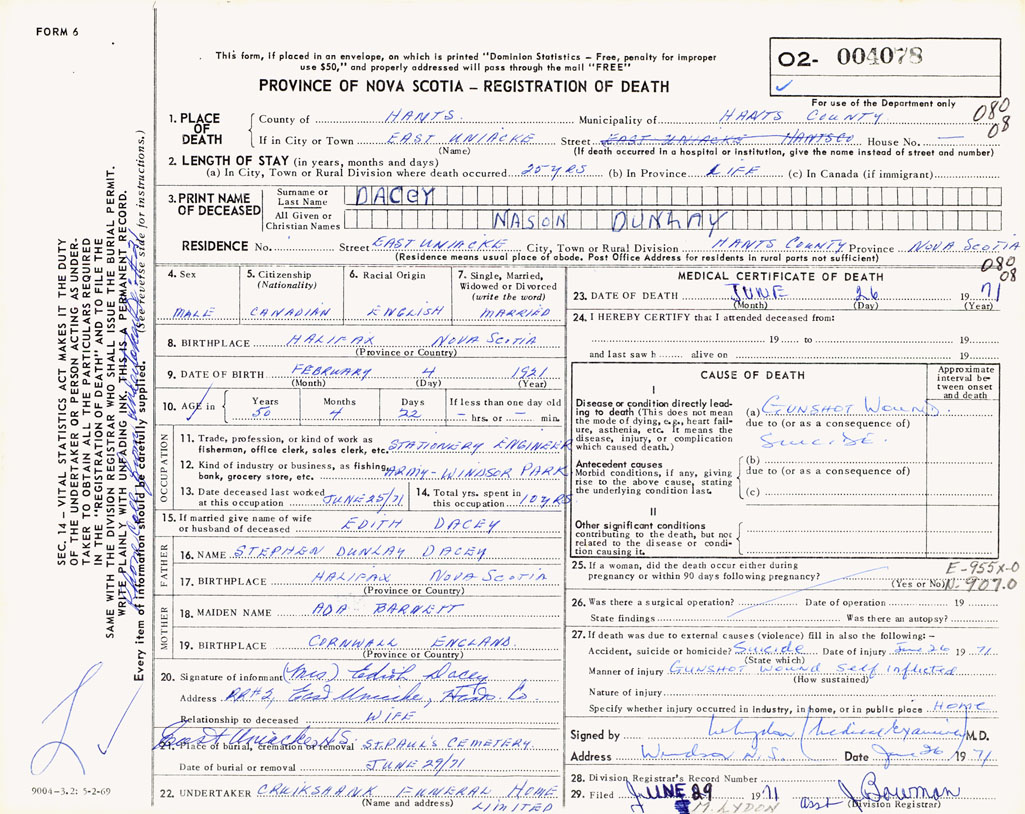 FORM 6
This form, if placed in an envelope, on which is printed "Dominion Statistics – Free, penalty for improper
use $50," and properly addressed will pass through the mail "FREE"
PROVINCE OF NOVA SCOTIA – REGISTRATION OF DEATH
02- 004078
For use of the Department only
080
08
1. PLACE OF DEATH
County of HANTS. Municipality of HANTS COUNTY
If in City or Town EAST UNIACKE Street EAST UNIACKE HANTSCO House No. —
(Name) (If death occurred in a hospital or institution, give the name instead of street and number)
2. LENGTH OF STAY (in years, months and days)
(a) In City, Town or Rural Division where death occurred 25 YRS (b) In Province LIFE (c) In Canada (if immigrant)
3. PRINT NAME OF DECEASED
Surname or Last Name DACEY
All Given or Christian Names NASON DUNLAY
RESIDENCE No. Street EAST UNIACKE City, Town or Rural Division HANTS COUNTY Province NOVA SCOTIA
(Residence means usual place of abode. Post Office Address for residents in rural parts not sufficient)
080
08
4. Sex MALE
5. Citizenship (Nationality) CANADIAN
6. Racial Origin ENGLISH
7. Single, Married, Widowed or Divorced (write the word) MARRIED
8. BIRTHPLACE HALIFAX NOVA SCOTIA
(Province or Country)
9. DATE OF BIRTH FEBRUARY 4 1921
(Month) (Day) (Year)
10. AGE in Years 50 Months 4 Days 22 If less than one day old – hrs. or – min.
OCCUPATION
11. Trade, profession, or kind of work as fisherman, office clerk, sales clerk, etc. STATIONERY ENGINEER
12. Kind of industry or business, as fishing, bank, grocery store, etc. ARMY-WINDSOR PARK
13. Date deceased last worked at this occupation JUNE 25/71
14. Total yrs. spent in this occupation 10 YRS
15. If married give name of wife or husband of deceased EDITH DACEY
FATHER
16. NAME STEPHEN DUNLAY DACEY
17. BIRTHPLACE HALIFAX NOVA SCOTIA
(Province or Country)
MOTHER
18. MAIDEN NAME ADA BARNETT
19. BIRTHPLACE CORNWALL ENGLAND.
(Province or Country)
20. Signature of informant (Mrs) Edith Dacey
Address RR#2, East Uniacke, Hants Co.
Relationship to deceased WIFE
East Uniacke N.S.
21. Place of burial, cremation or removal ST. PAUL'S CEMETERY.
Date of burial or removal JUNE 29/71
22. UNDERTAKER CRUIKSHANK FUNERAL HOME
(Name and address) LIMITED
MEDICAL CERTIFICATE OF DEATH
23. DATE OF DEATH JUNE 26 1971
(Month) (Day) (Year)
24. I HEREBY CERTIFY that I attended deceased from:
19 to 19
and last saw h alive on 19
CAUSE OF DEATH
Approximate interval between onset and death
I
Disease or condition directly leading to death (This does not mean the mode of dying, e.g., heart failure, asthenia, etc. It means the disease, injury, or complication which caused death.)
(a) GUNSHOT WOUND.
due to (or as a consequence of)
SUICIDE.
Antecedent causes
Morbid conditions, if any, giving rise to the above cause, stating the underlying condition last.
(b)
due to (or as a consequence of)
(c)
II
Other significant conditions contributing to the death, but not related to the disease or condition causing it.
25. If a woman, did the death occur either during pregnancy or within 90 days following pregnancy? (Yes or No)
E-955X-0
N. 907.0
26. Was there a surgical operation? Date of operation 19
State findings Was there an autopsy?
27. If death was due to external causes (violence) fill in also the following: –
Accident, suicide or homicide? Suicide Date of injury June 26 1971
(State which)
Manner of injury GUNSHOT WOUND Self inflicted
(How sustained)
Nature of injury
Specify whether injury occurred in industry, in home, or in public place HOME
Signed by (Medical Examiner) M.D.
Address Windsor N.S. Date June 26 1971
28. Division Registrar's Record Number
29. Filed JUNE 29 1971 asst J Bowman
M. LYDON (Division Registrar)
SEC. 14 – VITAL STATISTICS ACT MAKES IT THE DUTY
OF THE UNDERTAKER OR PERSON ACTING AS UNDER-
TAKER TO OBTAIN ALL THE PARTICULARS REQUIRED
IN THE "REGISTRATION OF DEATH" AND TO FILE THE
SAME WITH THE DIVISION REGISTRAR WHO SHALL ISSUE THE BURIAL PERMIT.
WRITE PLAINLY WITH UNFADING INK, THIS IS A PERMANENT RECORD.
Every item of information should be carefully supplied. (See reverse side for instructions.)
9004-3.2: 5-2-69